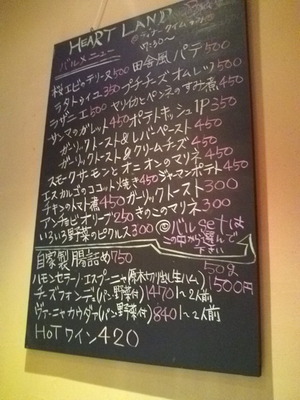 HEART LAND
バルメニュー
桜エビのテリーヌ500 田舎風パテ500
ラタトゥイユ350 プチチーズオムレツ500
ラザニエ500 ヤリイカとペンネのすみ煮450
サンマのガレット450 ポテトキッシュ1P350
ガーリックトースト&レバーペースト450
ガーリックトースト&クリームチーズ450
スモークサーモンとオニオンのマリネ450
エスカルゴのココット焼き450 ジャーマンポテト450
チキンのトマト煮450 ガーリックトースト300
アンチョビオリーブ250 きのこのマリネ300
いろいろ野菜のピクルス300 ◎バルsetは
この中から選んで
下さい
自家製腸詰め750
ハモンセラーノ・エスプーニャ(原木切り出し生ハム) 50g 1500円
チーズフォンデュ(パン野菜付)1470 1〜2人前
ヴァーニャカウダァ(パン野菜付)840 1〜2人前
HoTワイン420